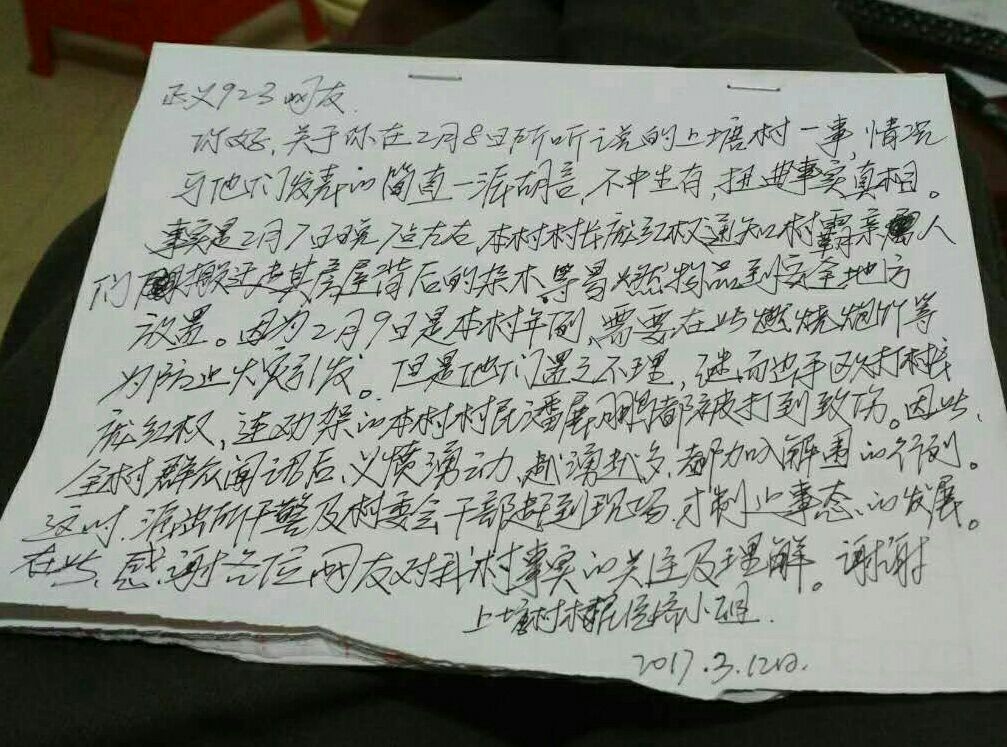 正义923网友.
你好,关于你在2月8日所听说的上塘村一事,情况
与他们发表的简直一派胡言,不中生有,扭曲事实真相。
事实是2月7日晚7点左右,本村村长庞红权通知村霸亲人
们搬迁走其房屋背后的杂木,等易燃物品到安全地方
放置。因为2月9日是本村年例,需要在此燃烧炮竹等
为防止火灾引发。但是他们置之不理,继而出手殴打村长
庞红权,连劝架的本村村民潘展鹏都被打到致伤。因此,
全村群众闻讯后,义愤涌动,越涌越多,都加入解围的行列。
这时,派出所干警及村委会干部赶到现场,才制止事态的发展。
在此,感谢各位网友对我村事实的关注及理解。谢谢
上塘村小组.
2017.3.12日.